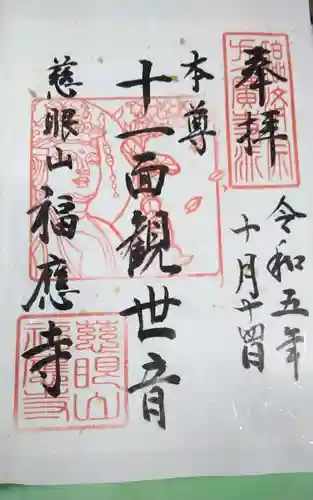 奉拝
令和五年
十月十四日
本尊
十一面観世音
慈眼山
福應寺
慈眼山
福應寺